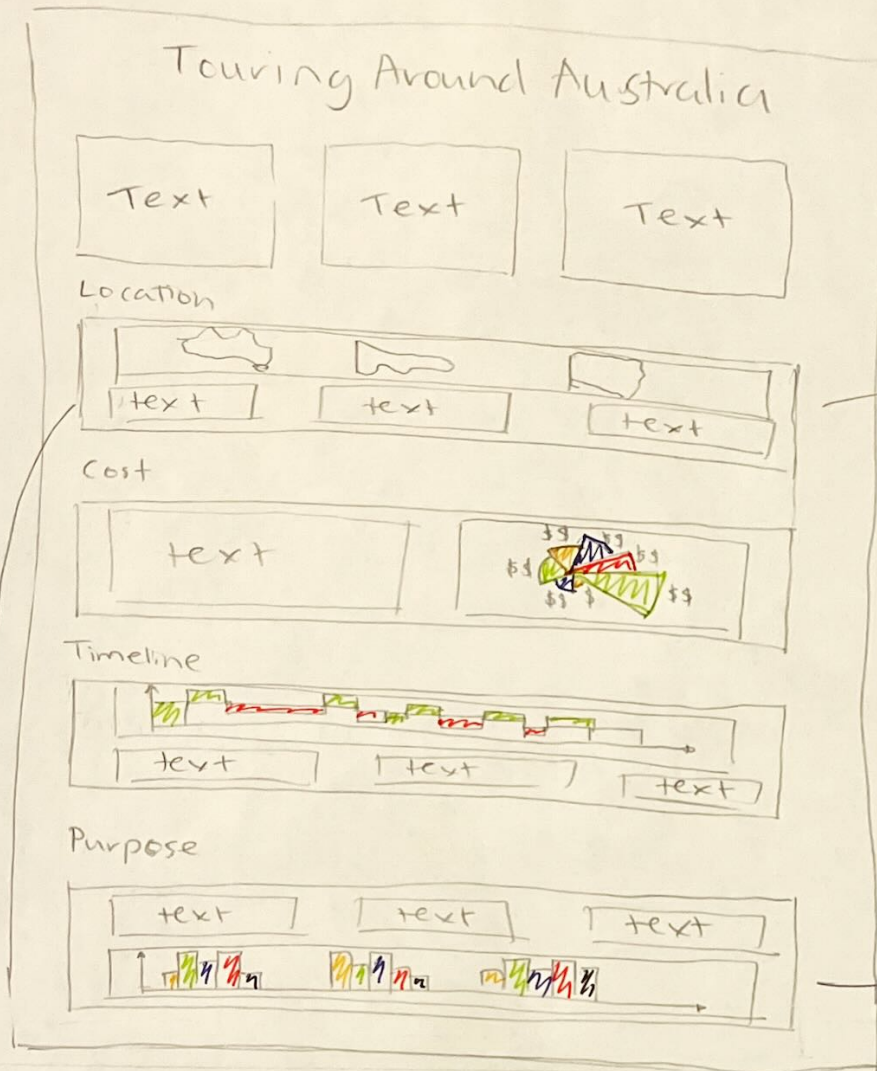 Touring Around Australia
Text Text Text
Location
text text text
Cost
text
$$ $$
$$ $$
$$ $ $$
Timeline
text text text
Purpose
text text text